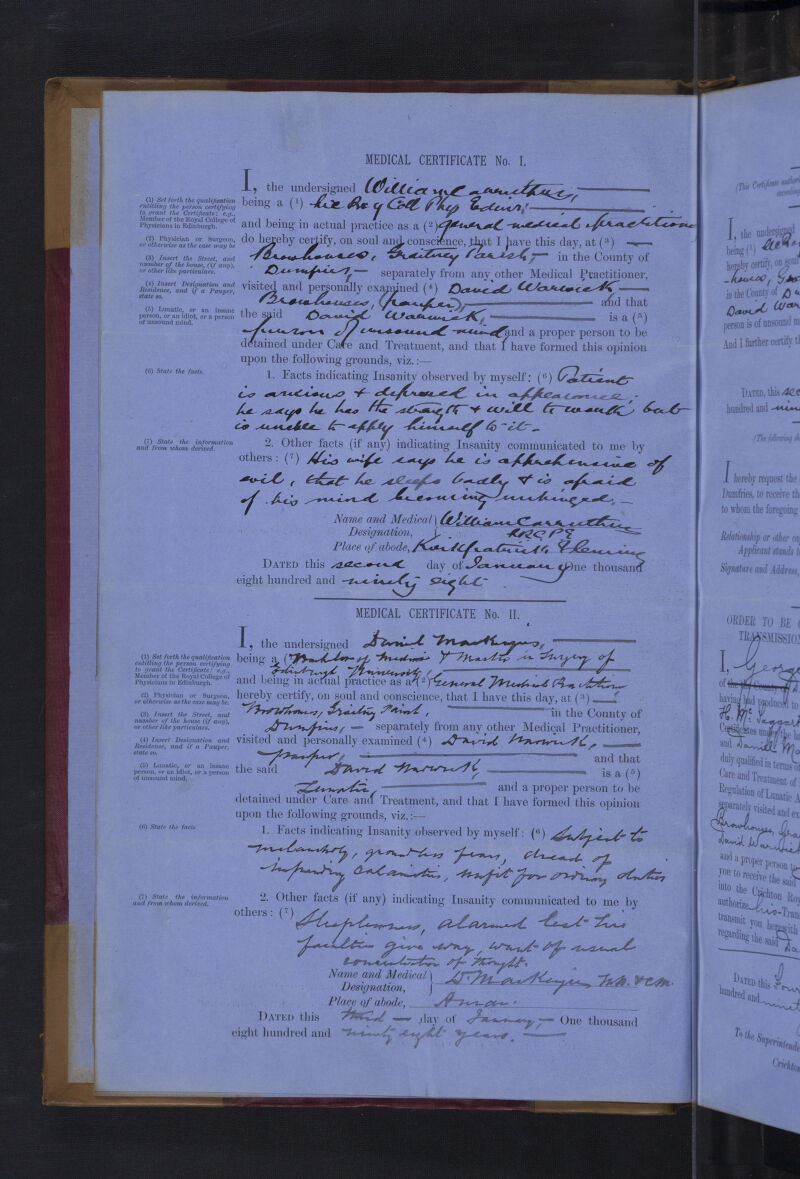 MEDICAL CERTIFICATE No. I.
I, the undersigned William Carruthers,
(1) Set forth the qualification entitling the person certifying to grant the Certificate: e.g., Member of the Royal College of Physicians in Edinburgh.
being a (1) Lic Roy Coll Phys Edinr;
and being in actual practice as a (2) general medical practitioner
(2) Physician or Surgeon, or otherwise as the case may be
do hereby certify, on soul and conscience, that I have this day, at (3)
(3) Insert the Street, and number of the house, (if any), or other like particulars.
Browhouses, Graitney Parish, in the County of
Dumfries, separately from any other Medical Practitioner,
(4) Insert Designation and Residence, and if a Pauper, state so.
visited and personally examined (4) David Warwick
Browhouses, (pauper), and that
(5) Lunatic, or an insane person, or an idiot, or a person of unsound mind.
the said David Warwick, is a (5)
person of unsound mind and a proper person to be
detained under Care and Treatment, and that I have formed this opinion
upon the following grounds, viz.:—
(6) State the facts.
1. Facts indicating Insanity observed by myself: (6) Patient
is anxious & depressed in appearance;
he says he has the strength & will to work but
is unable to apply himself to it.
(7) State the information and from whom derived.
2. Other facts (if any) indicating Insanity communicated to me by
others: (7) His wife says he is apprehensive of
evil, that he sleeps badly & is afraid
of his mind becoming unhinged.
Name and Medical Designation, William Carruthers
LRCPE
Place of abode, Kirkpatrick Fleming
DATED this second day of January One thousand
eight hundred and ninety eight
MEDICAL CERTIFICATE No. II.
I, the undersigned Daniel MacKenzie,
(1) Set forth the qualification entitling the person certifying to grant the Certificate: e.g., Member of the Royal College of Physicians in Edinburgh.
being a (1) Bachelor of Medicine & Master in Surgery of
Edinburgh University
and being in actual practice as a (2) General Medical Practitioner
(2) Physician or Surgeon, or otherwise as the case may be.
hereby certify, on soul and conscience, that I have this day, at (3)
(3) Insert the Street, and number of the house (if any), or other like particulars.
Browhouses, Graitney Parish, in the County of
Dumfries, separately from any other Medical Practitioner,
(4) Insert Designation and Residence, and if a Pauper, state so.
visited and personally examined (4) David Warwick,
pauper, and that
(5) Lunatic, or an insane person, or an idiot, or a person of unsound mind.
the said David Warwick, is a (5)
Lunatic, and a proper person to be
detained under Care and Treatment, and that I have formed this opinion
upon the following grounds, viz.:—
(6) State the facts
1. Facts indicating Insanity observed by myself: (6) Subject to
melancholy, groundless fears, dread of
impending calamities, unfit for ordinary duties
(7) State the information and from whom derived.
2. Other facts (if any) indicating Insanity communicated to me by
others: (7)
Sleeplessness, alarmed lest his
faculties give way, want of usual
concentration of thought.
Name and Medical Designation, D. MacKenzie M.B. & C.M.
Place of abode, Annan.
DATED this third day of January, One thousand
eight hundred and ninety eight years.
(This Certificate
I, the undersigned
being (1)
hereby certify, on soul
in the County of
David War
person is of unsound
And I further certify
DATED, this
hundred and
(The following
I hereby request the
Dumfries, to receive
to whom the foregoing
Relationship or other
Applicant stands
Signature and Address,
ORDER TO BE
TRANSMISSION
I, George
of the County of
having had produced to
H. Mc. Taggart
Certificates under the
and Daniel
duly qualified in terms
Care and Treatment of
Regulation of Lunatic
separately visited and
Browhouses,
David Warwick
and a proper person to
you to receive the said
into the Crichton
authorize his
transmit you herewith
regarding the said
DATED this
hundred and
To the Superintende
Crichton